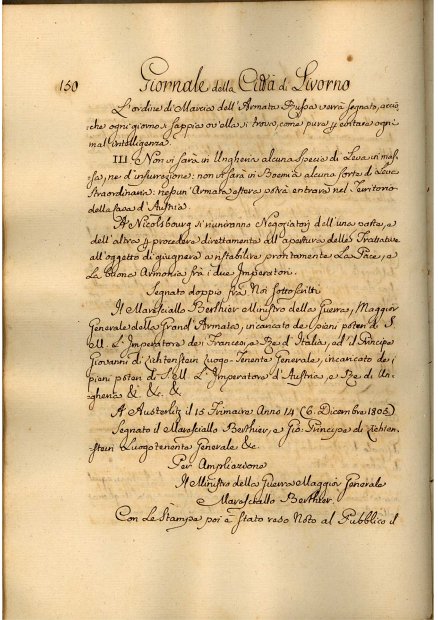 150 Giornale della Città di Livorno
L'ordine di Marcia dell'Armata Russa verrà segnato, acciò
che ogni giorno si sappia ov'ella si trova, come pure p evitare ogni
mal'Intelligenza.
III Non vi sarà in Ungheria alcuna specie di Leva in mas-
sa, nè d'insurezione: non vi sarà in Boemia alcuna sorte di Leve
straordinarie: nesun'Armata estera potrà entrare nel Territorio
della casa d'Austria.
A Nicolsbourg si riuniranno Negoziatorj dell'una parte, e
dell'altra p procedere direttamente all'apertura delle Trattative
all'oggetto di giugnere a ristabilire prontamente La Pace, e
La buona Armonia frà i due Imperatori.
Segnato doppio frà Noi sottoscritti
Il Maresciallo Berthier Ministro della Guerra, Maggior
Generale della Grand'Armata, incaricato de' pieni poteri di S.
M. L'Imperatore dei Francesi, e Rè d'Italia, ed il Principe
Giovanni di Lichtenstein Luogo-Tenente Generale, incaricato de'
pieni poteri di S. M. L'Imperatore d'Austria, e Rè di Un-
gheria &. &. &
A Austerlitz il 15 Frimaire Anno 14 (6. Dicembre 1805)
Segnato il Maresciallo Berthier, e Gio: Principe di Lichten-
stein Luogotenente Generale &c.
Per Ampliazione
Il Ministro della Guerra Maggior Generale
Maresciallo Berthier.
Con Le Stampe poi è stato reso Noto al Pubblico il